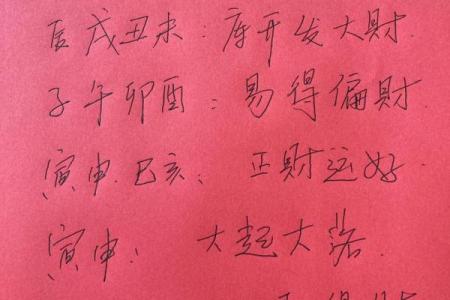 辰戌丑未:库开发大财.
子午卯酉:易得偏财.
寅申.巳亥:正财运好.
寅申:大起大落.